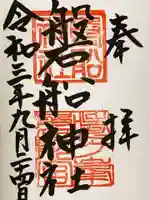 奉拝
磐船神社
令和三年九月二四日